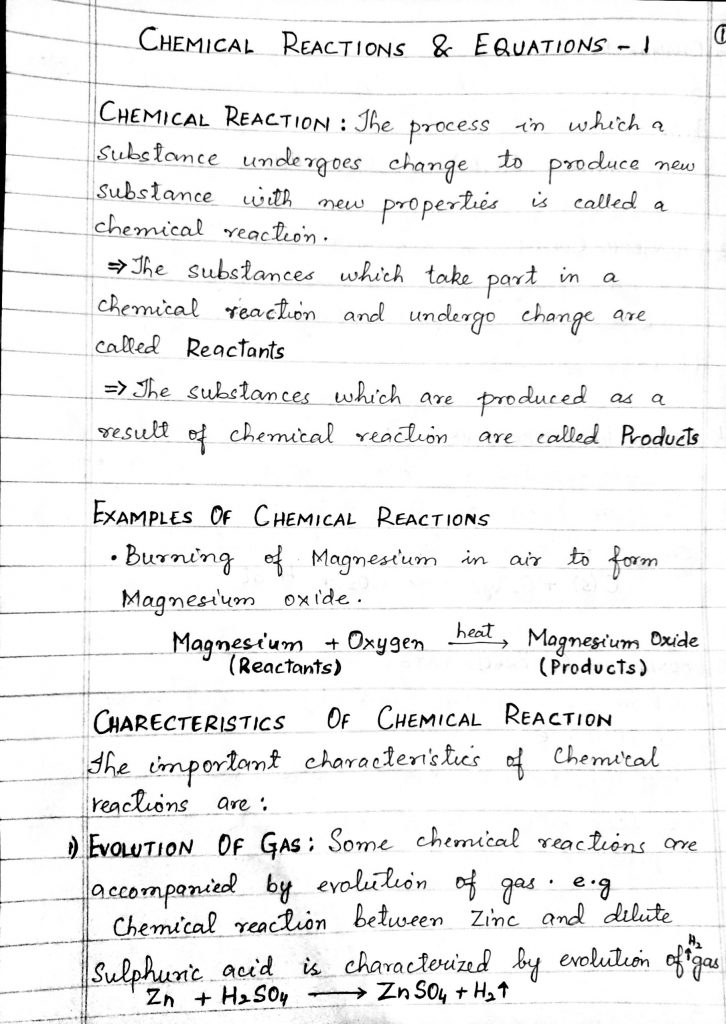 CHEMICAL REACTIONS & EQUATIONS - 1
1
CHEMICAL REACTION : The process in which a
substance undergoes change to produce new
substance with new properties is called a
chemical reaction.
⇒ The substances which take part in a
chemical reaction and undergo change are
called Reactants
⇒ The substances which are produced as a
result of chemical reaction are called Products
EXAMPLES OF CHEMICAL REACTIONS
• Burning of Magnesium in air to form
Magnesium oxide.
Magnesium + Oxygen heat→ Magnesium Oxide
(Reactants) (Products)
CHARECTERISTICS OF CHEMICAL REACTION
The important characteristics of Chemical
reactions are :
1) EVOLUTION OF GAS : Some chemical reactions are
accompanied by evolution of gas. e.g
Chemical reaction between Zinc and dilute
Sulphuric acid is characterized by evolution of H₂ gas
Zn + H₂SO₄ → ZnSO₄ + H₂↑